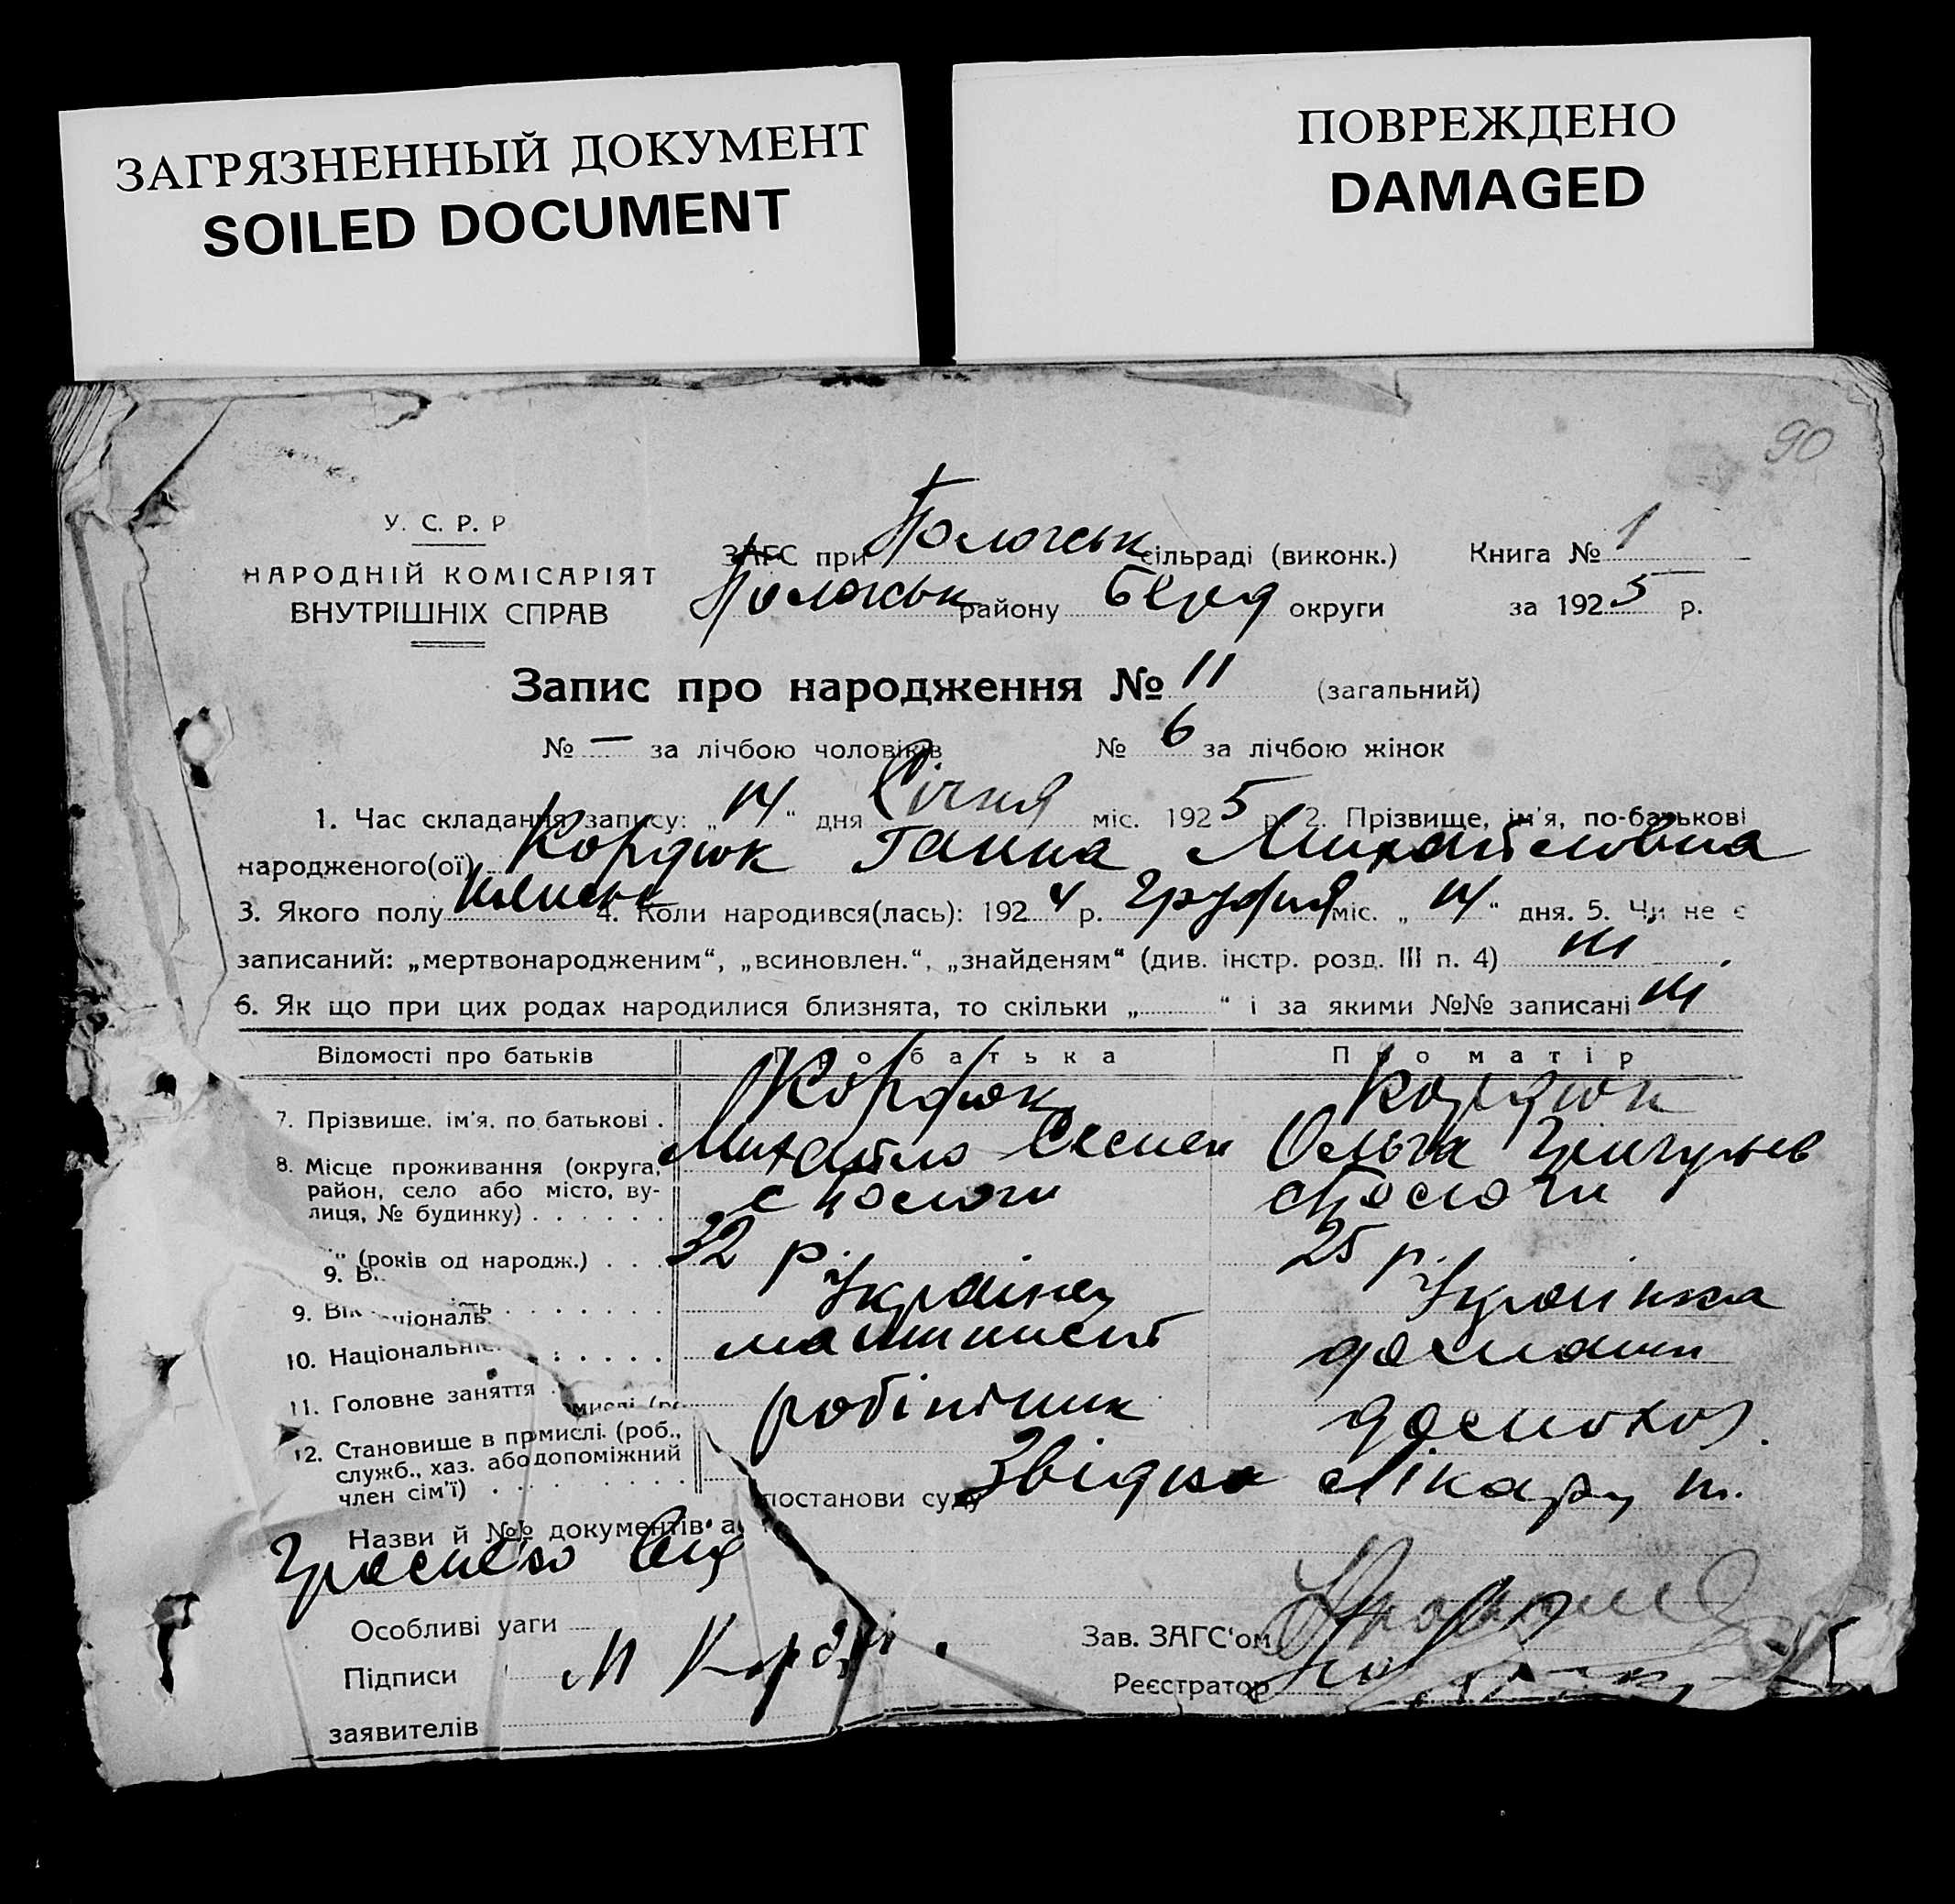 ЗАГРЯЗНЕННЫЙ ДОКУМЕНТ
SOILED DOCUMENT
ПОВРЕЖДЕНО
DAMAGED
90
У. С. Р. Р
НАРОДНІЙ КОМІСАРІЯТ
ВНУТРІШНІХ СПРАВ
ЗАГС при Пологськ сільраді (виконк.) Книга № 1
Пологськ району Берд округи за 1925 р.
Запис про народження № 11 (загальний)
№ — за лічбою чоловіків № 6 за лічбою жінок
1. Час складання запису: „14“ дня Січня міс. 1925 р. 2. Прізвище, ім'я, по-батькові
народженого(ої) Кордюк Ганна Михайловна
3. Якого полу 4. Коли народився(лась): 1924 р. Грудня міс. „14“ дня. 5. Чи не є
записаний: „мертвонародженим“, „всиновлен.“, „знайденям“ (див. інстр. розд. III п. 4) ні
6. Як що при цих родах народилися близнята, то скільки „ “ і за якими №№ записані ні
Відомості про батьків Про батька Про матір
7. Прізвище, ім'я, по батькові . Кордюк Кордюк
Михайло Семен Ольга
8. Місце проживання (округа, район, село або місто, вулиця, № будинку) . . . . . . с Пологи с Пологи
(років од народж.) . . . 32 р 25 р.
9. Вік
10. Національніс Українец Українка
11. Головне заняття машинист домашн
12. Становище в прмислі. (роб., служб., хаз. або допоміжний член сім'ї) робітник домохоз.
Назви й №№ документів а постанови суду Звідка Лікару п.
Особливі уаги
Підписи М Корд
заявителів
Зав. ЗАГС'ом
Реєстратор